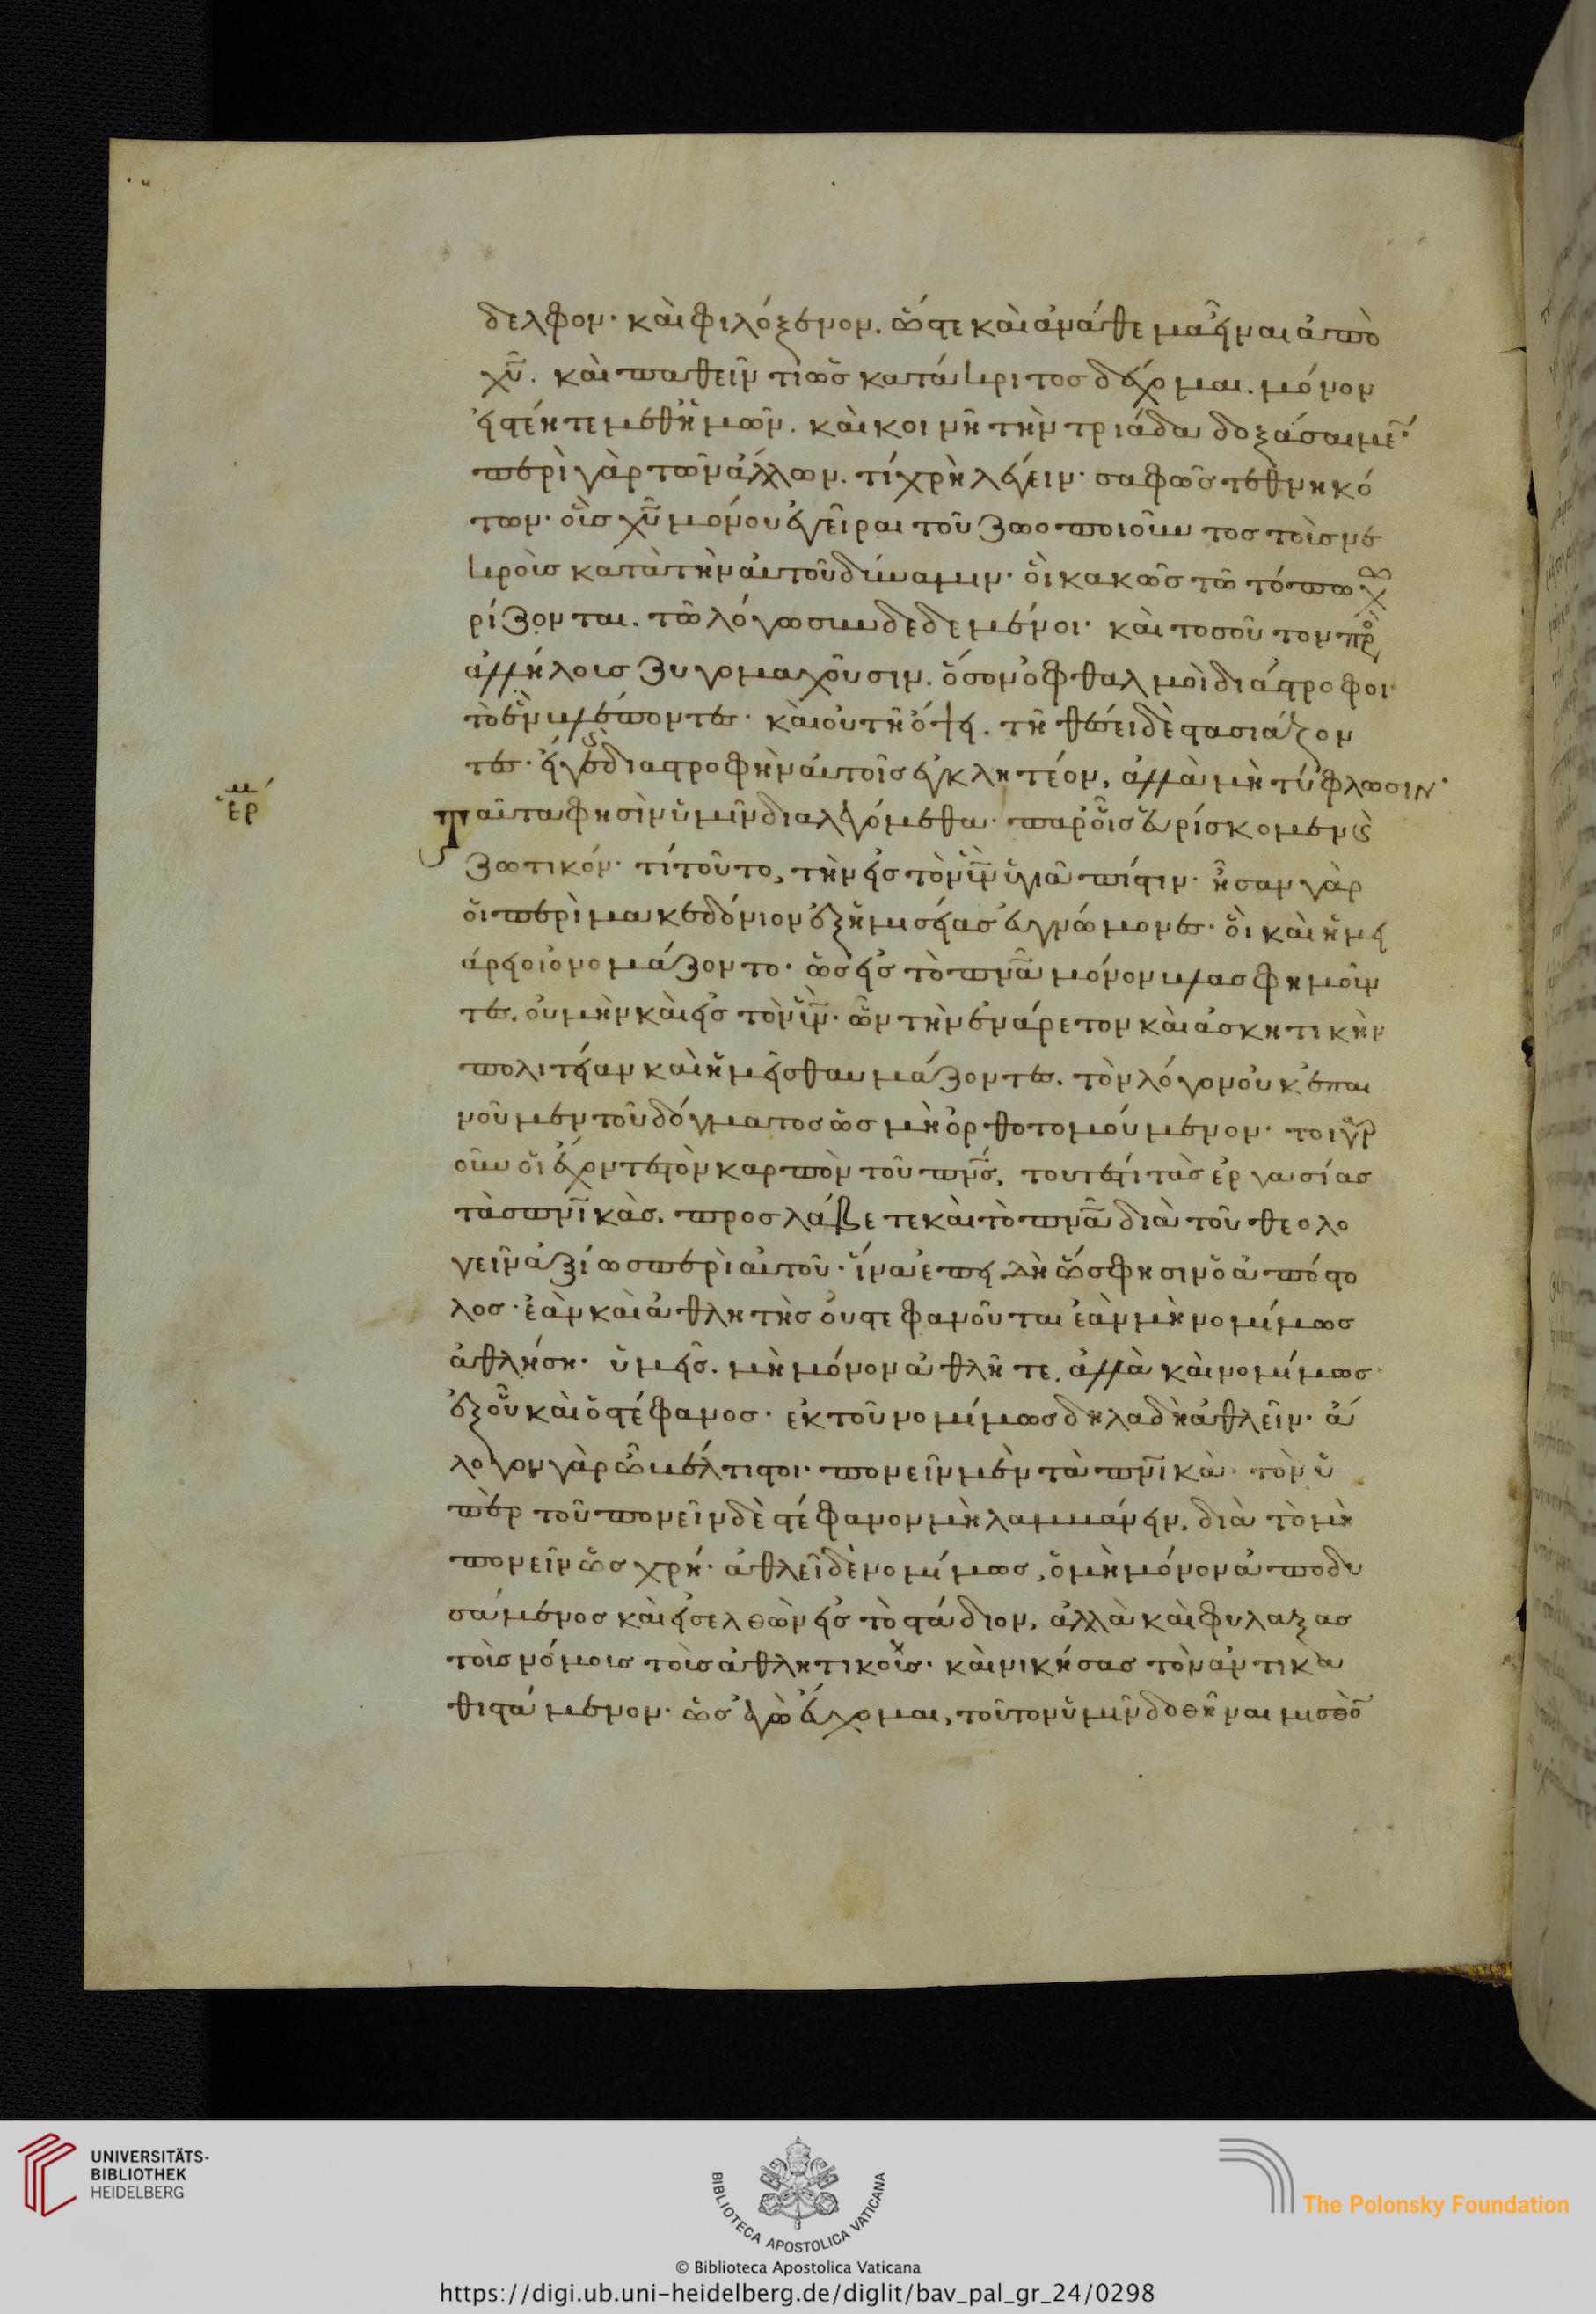 δελφον· καὶ φιλόξενον. ὥστε καὶ ἀνάθεμα εἶναι ἀπὸ
χῦ. καὶ παθεῖν τι ὡς κατάκριτος δέχομαι. μόνον
εἰ στέητε μεθ ἡμῶν. καὶ κοινῆ τὴν τριάδα δοξάσαιμε̅·
περὶ γὰρ τῶν ἄλλων. τί χρὴ λέγειν· σαφῶς τεθνηκό
των· οἷς χῦ μόνου ἐγεῖραι τοῦ ζωοποιοῦντος τοὺς νε
κροὺς κατὰ τὴν αὐτοῦ δύναμιν· οἳ κακῶς τῶ τόπω χω
ρίζονται. τῶ λόγω συνδεδεμένοι· καὶ τοσοῦτον πρὸ
ἀλλήλοις ζυγομαχοῦσιν. ὅσον ὀφθαλμοὶ διάστροφοι·
τὸ ἓν βλέποντες· καὶ οὐ τῆ ὄψει. τῆ θέσει δὲ στασιάζον
τες· εἴ γε διαστροφὴν αὐτοῖς ἐγκλητέον, ἀλλὰ μὴ τύφλωσιν·
ἑρμ
Ταῦτα φησὶν ὑμῖν διαλεγόμεθα· παρ οἷς εὑρίσκομεν ς
ζωτικόν· τί τοῦτο, τὴν εἰς τὸν υἱν ὑγιᾶ πίστιν· ἦσαν γὰρ
οἱ περὶ μακεδόνιον ἐξ ἡμισείας εὐγνώμονες· οἳ καὶ ἡμι
άρειοι ὀνομάζοντο· ὡς εἰς τὸ πνᾶ μόνον βλασφημοῦν
τες. οὐ μὴν καὶ εἰς τὸν υἱν· ὧν τὴν ἐνάρετον καὶ ἀσκητικὴν
πολιτείαν καὶ ἡμεῖς θαυμάζοντες. τὸν λόγον οὐκ ἐπαι
νοῦμεν τοῦ δόγματος ὡς μὴ ὀρθοτομούμενον· τοιγρ
οῦν οἱ ἔχοντες τὸν καρπὸν τοῦ πνς, τουτέστι τὰς ἐργασίας
τὰς πνικὰς. προσλάβετε καὶ τὸ πνᾶ διὰ τοῦ θεολο
γεῖν ἀξίως περὶ αὐτοῦ· ἵνα ἐπειδὴ ὥς φησιν ὁ ἀπόστο
λος· ἐὰν καὶ ἀθλητὴς οὐ στεφανοῦται ἐὰν μὴ νομίμως
ἀθλήση· ὑμεῖς. μὴ μόνον ἀθλῆτε. ἀλλὰ καὶ νομίμως·
ἐξ οὗ καὶ ὁ στέφανος· ἐκ τοῦ νομίμως δηλαδὴ ἀθλεῖν· ἄ
λογον γὰρ ὦ βέλτιστοι· πονεῖν μὲν τὰ πνικὰ· τὸν ὑ
πὲρ τοῦ πονεῖν δὲ στέφανον μὴ λαμβάνειν, διὰ τὸ μὴ
πονεῖν ὡς χρή· ἀθλεῖ δὲ νομίμως, ὁ μὴ μόνον ἀποδυ
σάμενος καὶ εἰσελθὼν εἰς τὸ στάδιον, ἀλλὰ καὶ φυλάξας
τοὺς νόμους τοὺς ἀθλητικοὺς· καὶ νικήσας τὸν ἀντικα
θιστάμενον· ὡς ἐγὼ εὔχομαι, τοῦτον ὑμῖν δοθῆναι μισθὸ̅
UNIVERSITÄTS-
BIBLIOTHEK
HEIDELBERG
BIBLIOTECA APOSTOLICA VATICANA
© Biblioteca Apostolica Vaticana
The Polonsky Foundation
https://digi.ub.uni-heidelberg.de/diglit/bav_pal_gr_24/0298